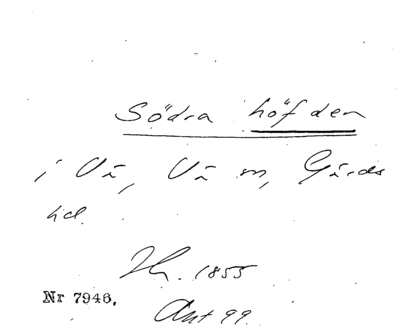 Södra höfden
i Vä, Vä sn, Gärds
hd.
Hr. 1855
Nr 7946.
Ant 99.